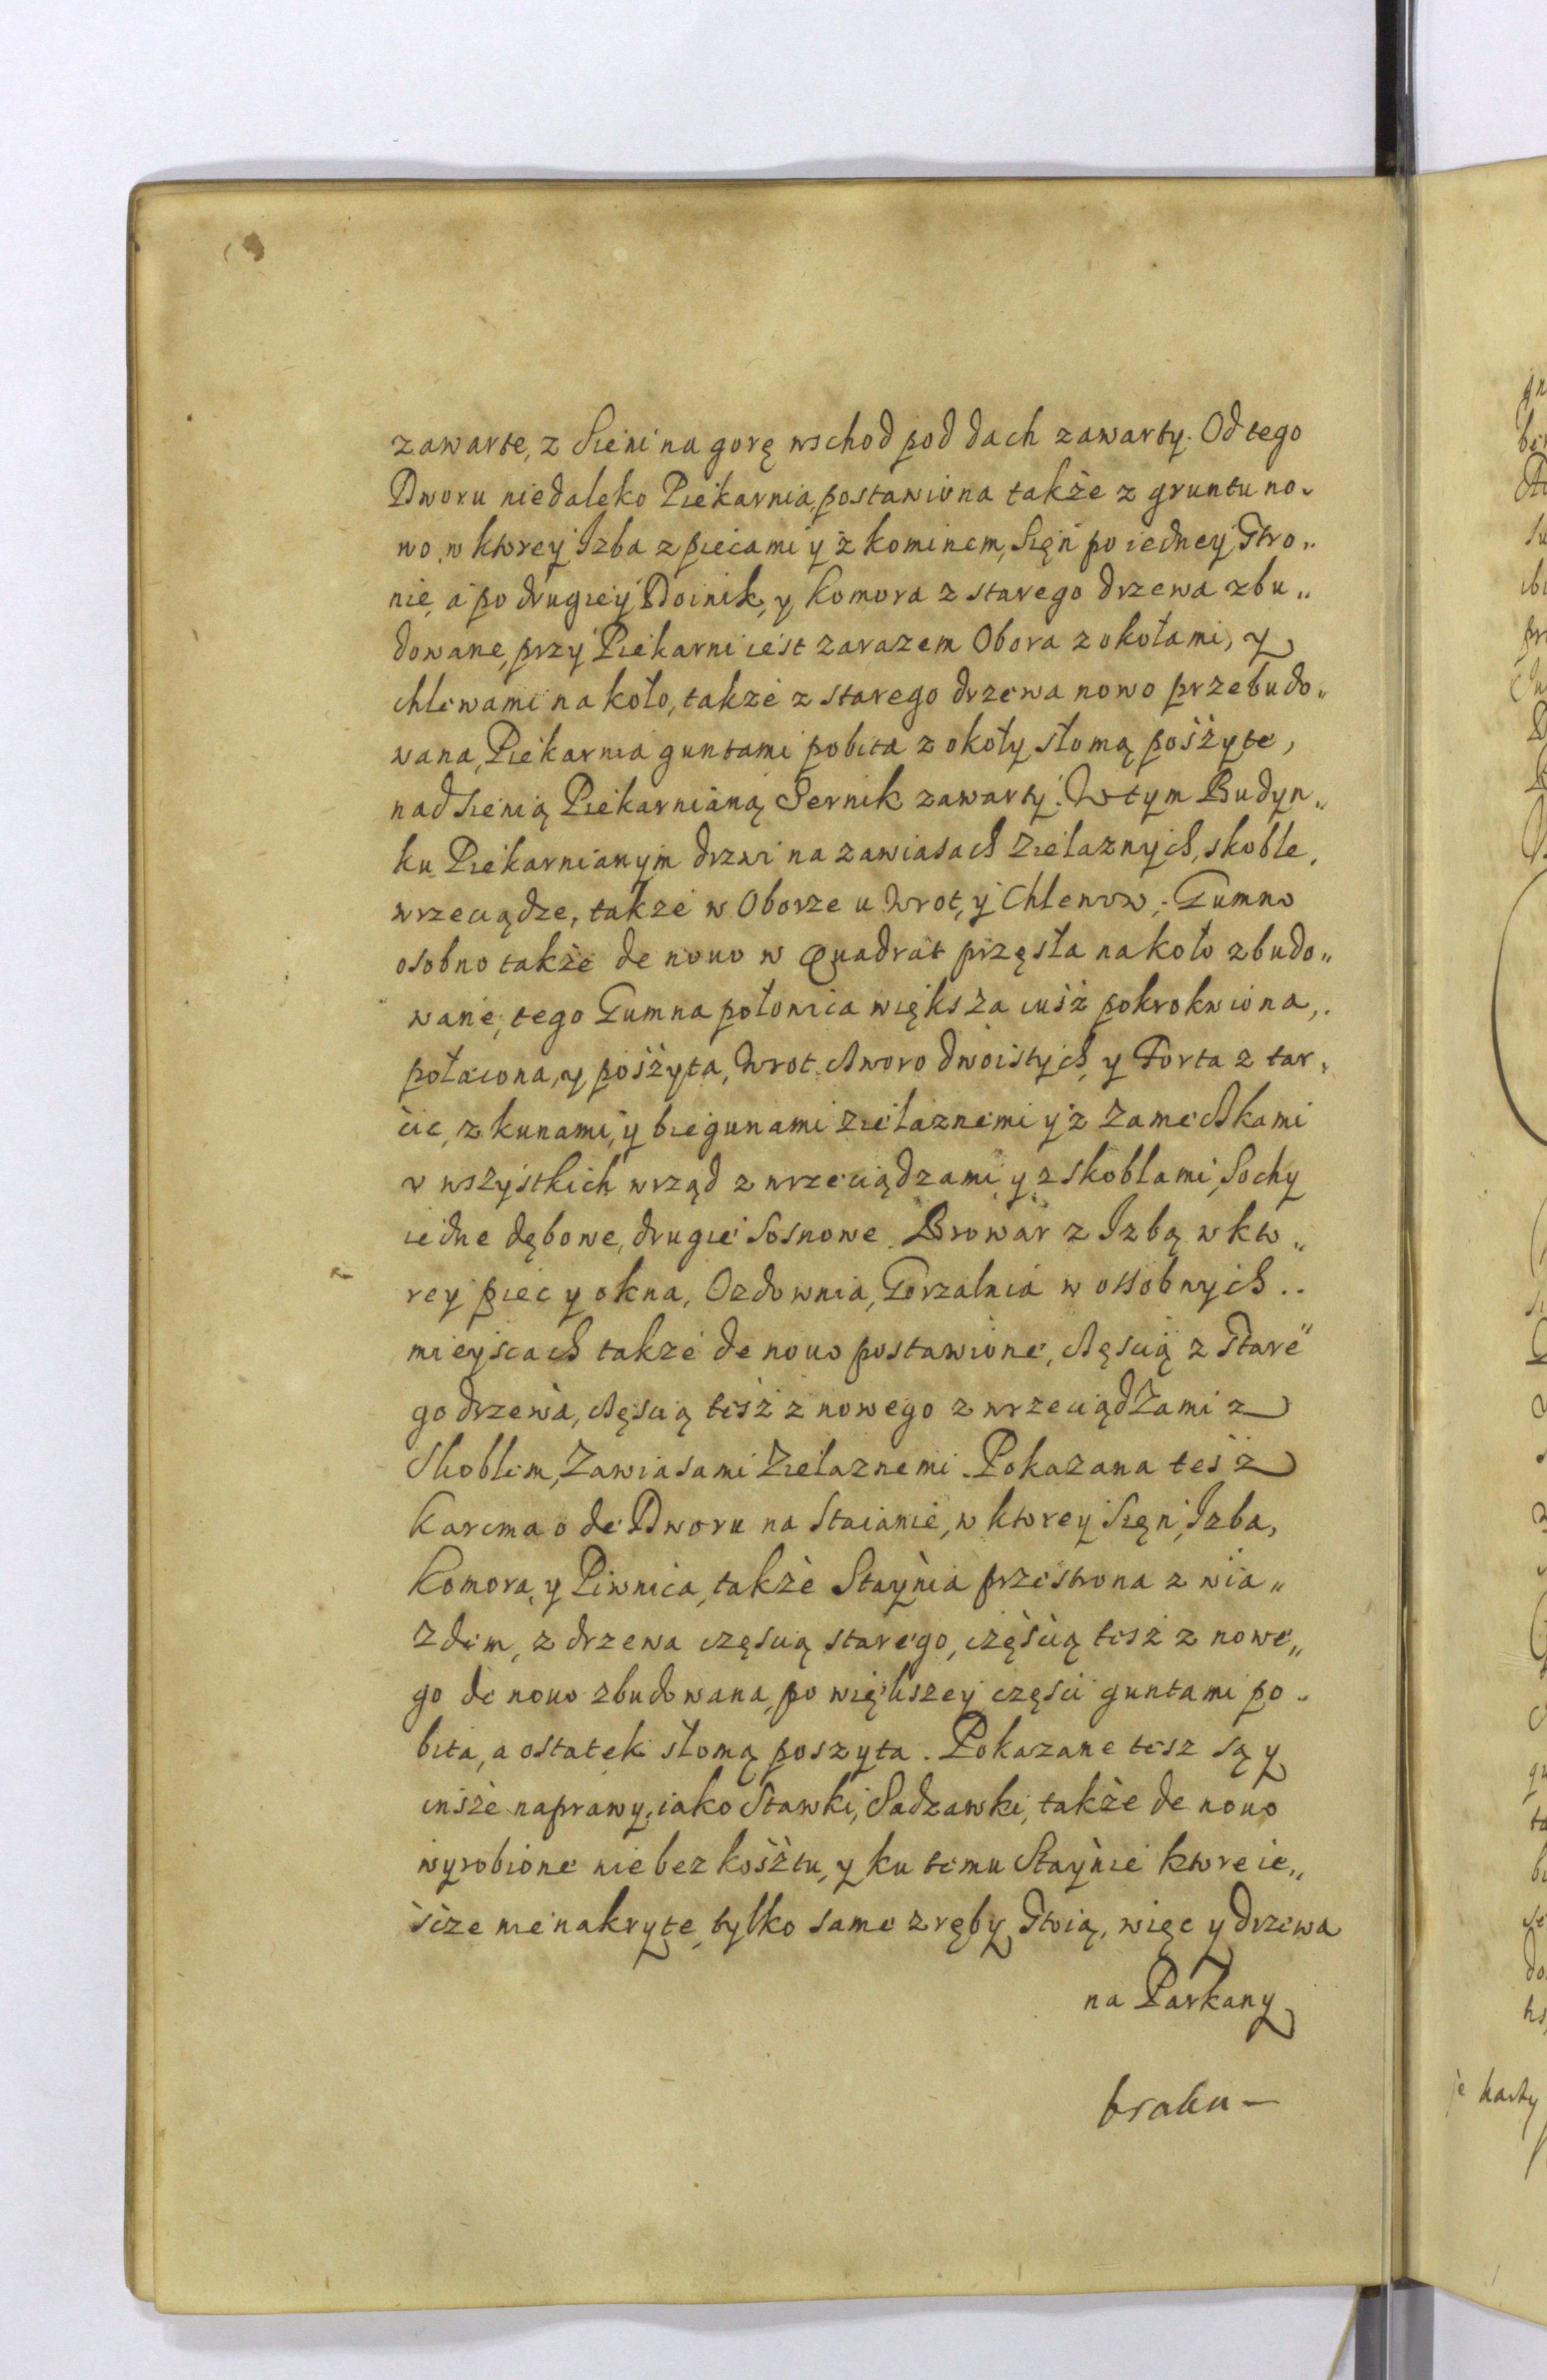 zawarte, z Sieni na gorę wschod pod dach zawarty. Od tego
Dworu niedaleko Piekarnia, postawiona także z gruntu no„
wo, w ktorey Izba z piecami y z kominem, Sięń po iedney Stro„
nie, a po drugiey Doinik, y Komora z starego drzewa zbu„
dowane, przy Piekarni iest zarazem Obora z okołami, y
chlewami na koło, także z starego drzewa nowo przebudo„
wana, Piekarnia guntami pobita z okoły słomą poszyte,
nad Sienią Piekarnianą Sernik zawarty. W tym Budyn„
ku Piekarnianym drzwi na zawiasach zielaznych, skoble,
wrzeciądze, także w Oborze u Wrot, y Chlewow; Gumno
osobno także de nouo w Quadrat przęsła na koło zbudo„
wane, tego Gumna połowica większa iusz pokrokwiona,
połacona, y poszyta, Wrot choro dwoistych, y Forta z tar„
cic, z kunami, y biegunami zielaznemi y z zameczkami
v wszystkich wrząd z wrzeciądzami y z skoblami, Sochy
iedne dębowe, drugie Sosnowe. Browar z Izbą w kto„
rey piec y okna, Ozdownia, Gorzalnia w ossobnych
mieyscach także de nouo postawione, częscią z Stare„
go drzewa, częscią tesz z nowego z wrzeciądzami z
Skoblem, Zawiasami Zielaznemi. Pokazana tesz
Karcma ode Dworu na Staianie, w ktorey Sięń, Izba,
Komora, y Piwnica, także Staynia przestrona z wia„
zdem, z drzewa częscią starego, częścią tesz z nowe„
go de nouo zbudowana, po większey części guntami po„
bita, a ostatek słomą poszyta. Pokazane tesz są y
insze naprawy, iako Stawki, Sadzawki, także de nouo
wyrobione nie bez kosztu, y ku temu Staynie ktore ie„
scze nie nakryte, tylko same zręby Stoią, więc y drzewa
na Parkany
braku —